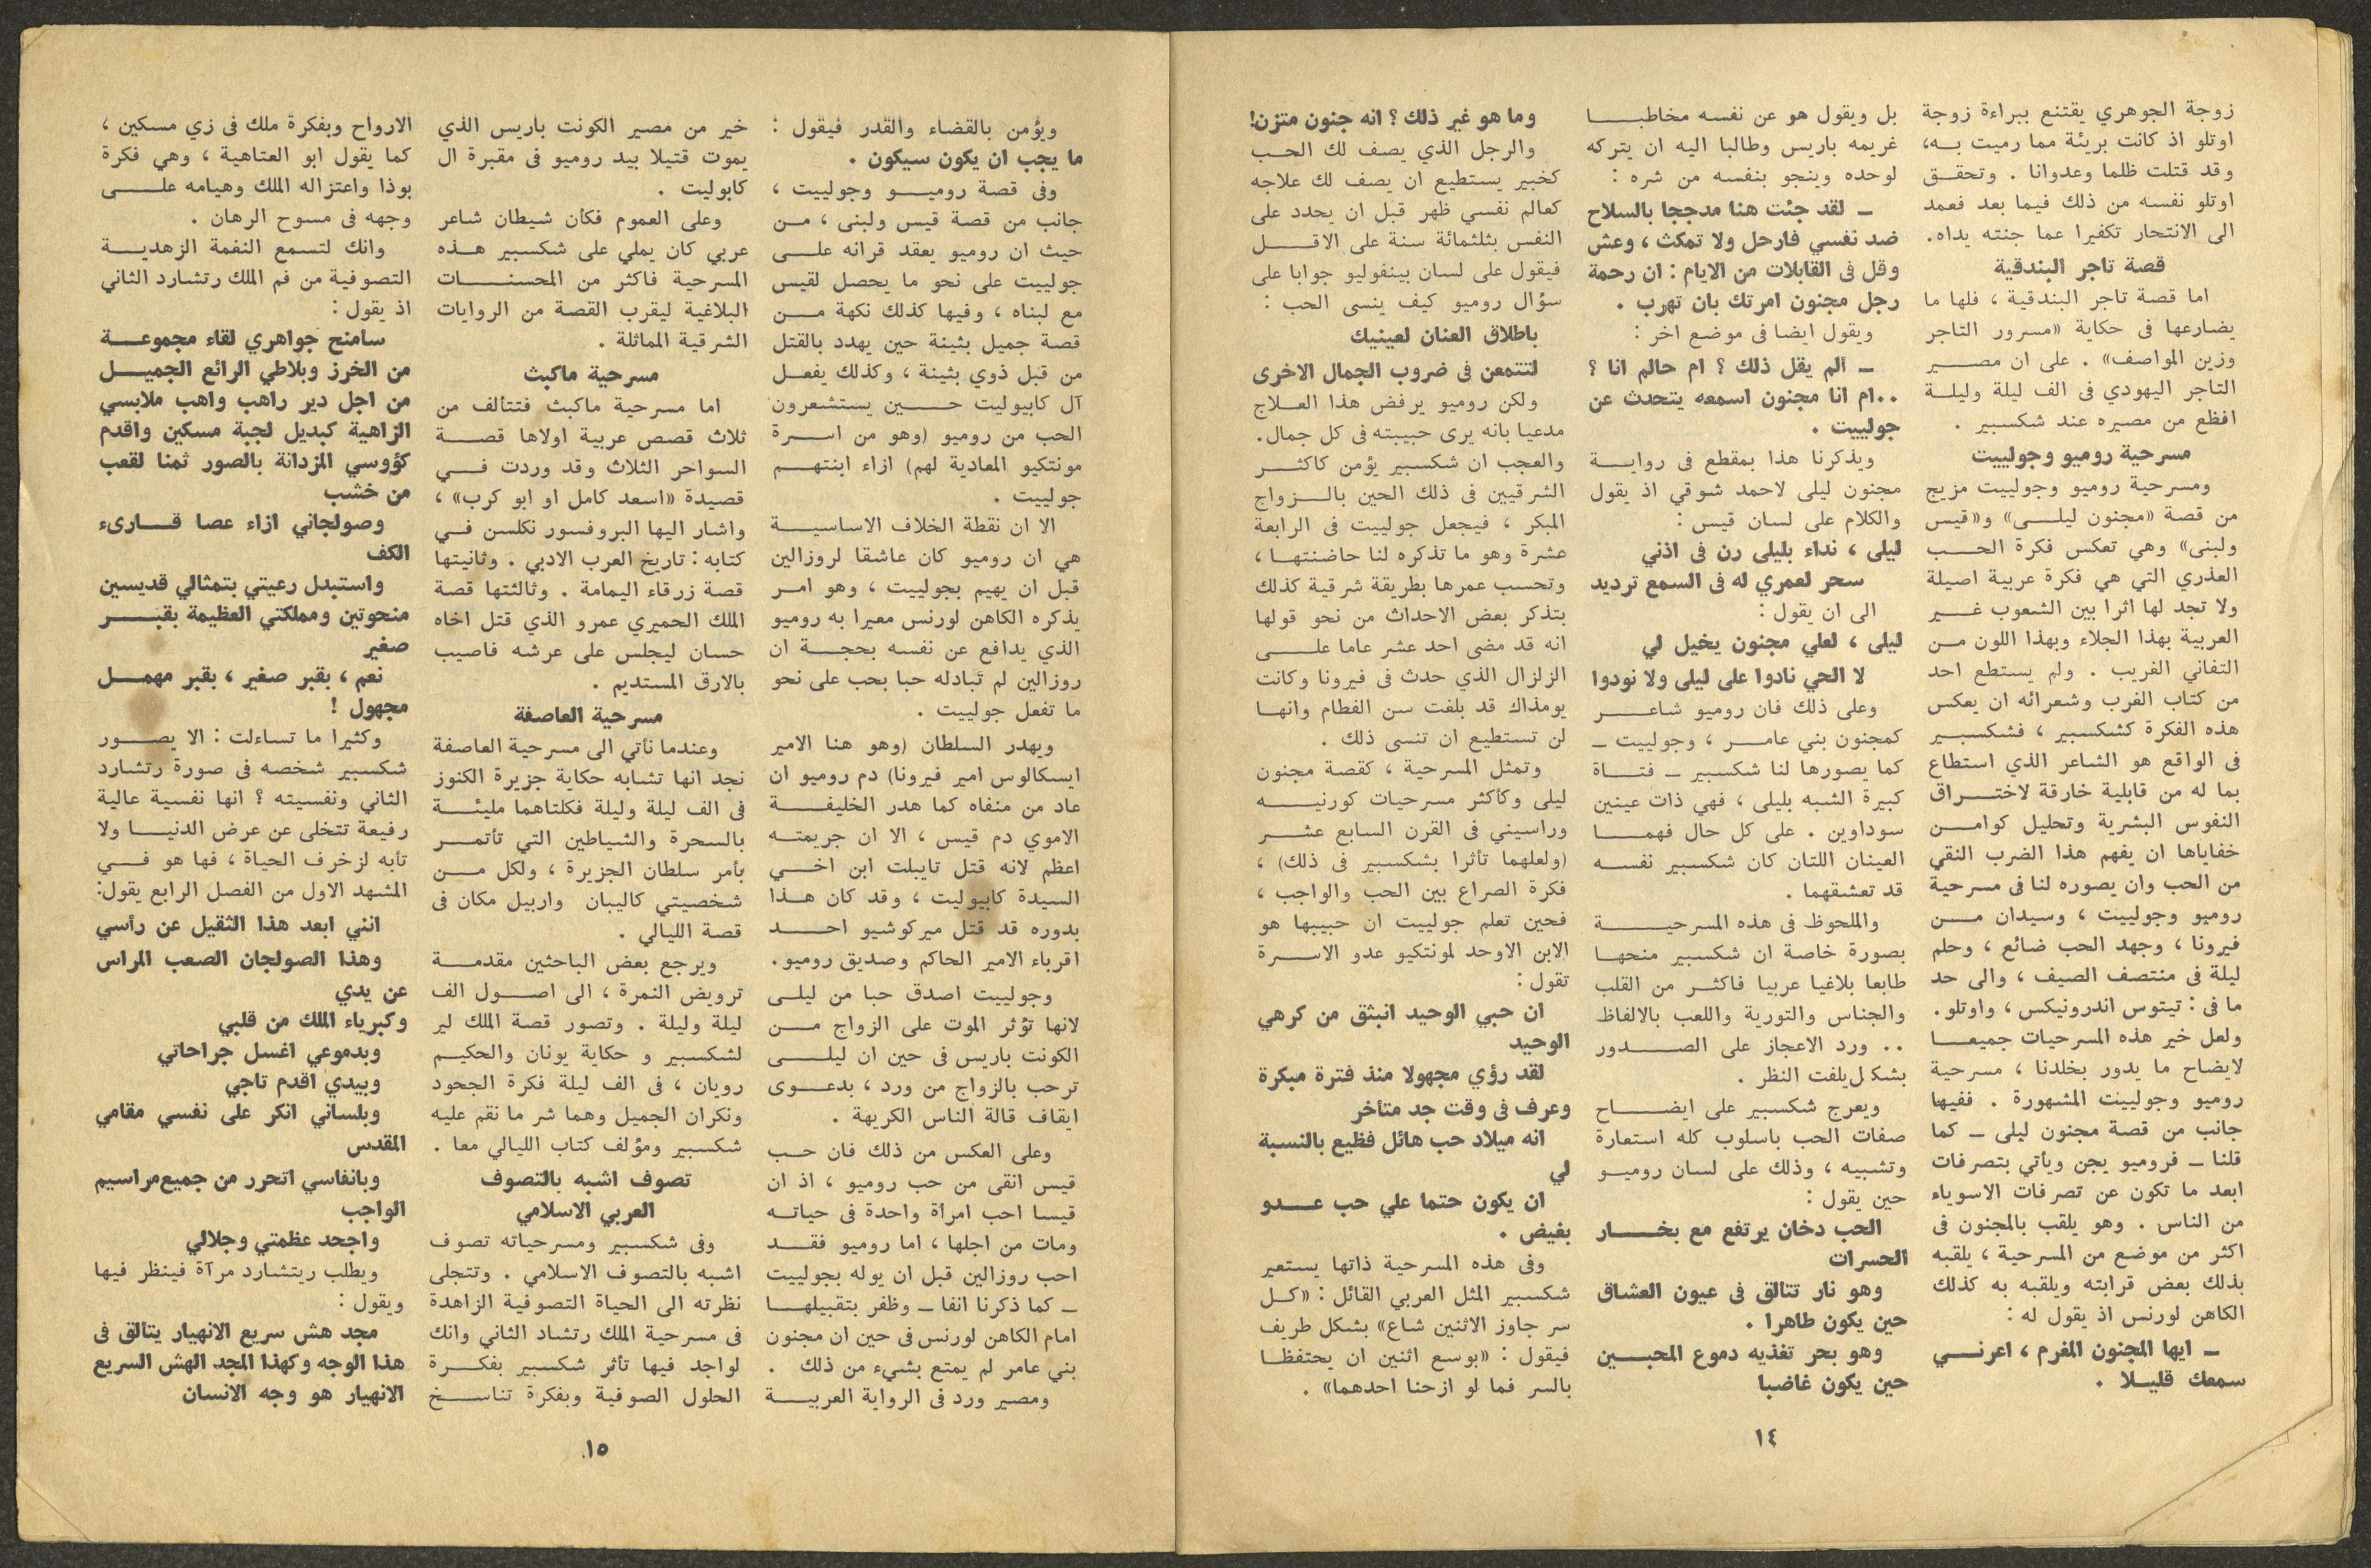 زوجة الجوهري يقتنع ببراءة زوجة
اوتلو اذ كانت بريئة مما رميت بـه،
وقد قتلت ظلما وعدوانا . وتحقـق
اوتلو نفسه من ذلك فيما بعد فعمد
الى الانتحار تكفيرا عما جنته يداه.
قصة تاجر البندقية
اما قصة تاجر البندقية ، فلها ما
يضارعها فى حكاية «مسرور التاجر
وزين المواصف» . على ان مصـــير
التاجر اليهودي فى الف ليلة وليلـة
افظع من مصيره عند شكسبير .
مسرحية روميو وجولييت
ومسرحية روميو وجولييت مزيج
من قصة «مجنون ليلـــى» و«قيس
ولبنى» وهي تعكس فكرة الحـــب
العذري التي هي فكرة عربية اصيلة
ولا تجد لها اثرا بين الشعوب غـــير
العربية بهذا الجلاء وبهذا اللون مـن
التفاني الغريب . ولم يستطع احد
من كتاب الغرب وشعرائه ان يعكس
هذه الفكرة كشكسبير ، فشكسبـير
فى الواقع هو الشاعر الذي استطاع
بما له من قابلية خارقة لاختـــراق
النفوس البشرية وتحليل كوامـــن
خفاياها ان يفهم هذا الضرب النقي
من الحب وان يصوره لنا فى مسرحية
روميو وجولييت ، وسيدان مـــن
فيرونا ، وجهد الحب ضائع ، وحلم
ليلة فى منتصف الصيف ، والى حد
ما فى : تيتوس اندرونيكس ، واوتلو.
ولعل خير هذه المسرحيات جميعـــا
لايضاح ما يدور بخلدنا ، مسرحية
روميو وجوليينت المشهورة . ففيها
جانب من قصة مجنون ليلى ـ كما
قلنا ـ فروميو يجن ويأتي بتصرفات
ابعد ما تكون عن تصرفات الاسوياء
من الناس . وهو يلقب بالمجنون فى
اكثر من موضع من المسرحية ، يلقبه
بذلك بعض قرابته ويلقبه به كذلك
الكاهن لورنس اذ يقول له :
ـ ايها المجنون المغرم ، اعرنـــي
سمعك قليـلا .
بل ويقول هو عن نفسه مخاطبـــا
غريمه باريس وطالبا اليه ان يتركه
لوحده وينجو بنفسه من شره :
ـ لقد جئت هنا مدججا بالسلاح
ضد نفسي فارحل ولا تمكث ، وعش
وقل فى القابلات من الايام : ان رحمة
رجل مجنون امرتك بان تهرب .
ويقول ايضا فى موضع اخر :
ـ الم يقل ذلك ؟ ام حالم انا ؟
..ام انا مجنون اسمعه يتحدث عن
جولييت .
ويذكرنا هذا بمقطع فى روايـــة
مجنون ليلى لاحمد شوقي اذ يقول
والكلام على لسان قيس :
ليلى ، نداء بليلى رن فى اذني
سحر لعمري له فى السمع ترديد
الى ان يقول :
ليلى ، لعلي مجنون يخيل لي
لا الحي نادوا على ليلى ولا نودوا
وعلى ذلك فان روميو شاعـــر
كمجنون بني عامـــر ، وجولييت ـ
كما يصورها لنا شكسبير ـ فتـــاة
كبيرة الشبه بليلى ، فهي ذات عينين
سوداوين . على كل حال فهمـــا
العينان اللتان كان شكسبير نفسـه
قد تعشقهما .
والملحوظ فى هذه المسرحيـــة
بصورة خاصة ان شكسبير منحهـا
طابعا بلاغيا عربيا فاكثـر من القلب
والجناس والتورية واللعب بالالفاظ
.. ورد الاعجاز على الصـــدور
بشكل يلفت النظر .
ويعرج شكسبير على ايضـــاح
صفات الحب باسلوب كله استعارة
وتشبيه ، وذلك على لسان روميـو
حين يقول :
الحب دخان يرتفع مع بخـــار
الحسرات
وهو نار تتالق فى عيون العشاق
حين يكون طاهرا .
وهو بحر تغذيه دموع المحبـــين
حين يكون غاضبا
وما هو غير ذلك ؟ انه جنون متزن!
والرجل الذي يصف لك الحـب
كخبير يستطيع ان يصف لك علاجه
كعالم نفسي ظهر قبل ان يحدد على
النفس بثلثمائة سنة على الاقـــل
فيقول على لسان بينفوليو جوابا على
سؤال روميو كيف ينسى الحب :
باطلاق العنان لعينيك
لتتمعن فى ضروب الجمال الاخرى
ولكن روميو يرفض هذا العـلاج
مدعيا بانه يرى حبيبته فى كل جمال.
والعجب ان شكسبير يؤمن كاكثـــر
الشرقيين فى ذلك الحين بالـــزواج
المبكر ، فيجعل جولييت فى الرابعة
عشرة وهو ما تذكره لنا حاضنتهـا ،
وتحسب عمرها بطريقة شرقية كذلك
بتذكر بعض الاحداث من نحو قولها
انه قد مضى احد عشر عاما علـــى
الزلزال الذي حدث فى فيرونا وكانت
يومذاك قد بلغت سن الفطام وانهـا
لن تستطيع ان تنسى ذلك .
وتمثل المسرحية ، كقصة مجنون
ليلى وكأكثر مسرحيات كورنيـــه
وراسيني فى القرن السابع عشـــر
(ولعلهما تأثرا بشكسبير فى ذلك) ،
فكرة الصراع بين الحب والواجب ،
فحين تعلم جولييت ان حبيبها هو
الابن الاوحد لمونتكيو عدو الاسـرة
تقول :
ان حبي الوحيد انبثق من كرهي
الوحيد
لقد رؤي مجهولا منذ فترة مبكرة
وعرف فى وقت جد متأخر
انه ميلاد حب هائل فظيع بالنسبة
لي
ان يكون حتما علي حب عـــدو
بغيض .
وفى هذه المسرحية ذاتها يستعير
شكسبير المثل العربي القائل : «كـل
سر جاوز الاثنين شاع» بشكل طريف
فيقول : «بوسع اثنين ان يحتفظـا
بالسر فما لو ازحنا احدهما» .
١٤
ويؤمن بالقضاء والقدر فيقول :
ما يجب ان يكون سيكون .
وفى قصة روميـــو وجولييت ،
جانب من قصة قيس ولبنى ، مـن
حيث ان روميو يعقد قرانه علـــى
جولييت على نحو ما يحصل لقيس
مع لبناه ، وفيها كذلك نكهة مـــن
قصة جميل بثينة حين يهدد بالقتل
من قبل ذوي بثينة ، وكذلك يفعـل
آل كابيوليت حـــين يستشعرون
الحب من روميو (وهو من اسـرة
مونتكيو المعادية لهم) ازاء ابنتهـم
جولييت .
الا ان نقطة الخلاف الاساسيـــة
هي ان روميو كان عاشقا لروزالين
قبل ان يهيم بجولييت ، وهو امـر
يذكره الكاهن لورنس معيرا به روميو
الذي يدافع عن نفسه بحجـــة ان
روزالين لم تبادله حبا بحب على نحو
ما تفعل جولييت .
ويهدر السلطان (وهو هنا الامير
ايسكالوس امير فيرونا) دم روميو ان
عاد من منفاه كما هدر الخليفـــة
الاموي دم قيس ، الا ان جريمتـه
اعظم لانه قتل تايبلت ابن اخـــي
السيدة كابيوليت ، وقد كان هـذا
بدوره قد قتل ميركوشيو احـــد
اقرباء الامير الحاكم وصديق روميو.
وجولييت اصدق حبا من ليلـى
لانها تؤثر الموت على الزواج مـــن
الكونت باريس فى حين ان ليلـــى
ترحب بالزواج من ورد ، بدعـــوى
ايقاف قالة الناس الكريهة .
وعلى العكس من ذلك فان حـب
قيس انقى من حب روميو ، اذ ان
قيسا احب امرأة واحدة فى حياتـه
ومات من اجلها ، اما روميو فقـــد
احب روزالين قبل ان يوله بجولييت
ـ كما ذكرنا انفا ـ وظفر بتقبيلهـا
امام الكاهن لورنس فى حين ان مجنون
بني عامر لم يمتع بشيء من ذلك .
ومصير ورد فى الرواية العربيـــة
خير من مصير الكونت باريس الذي
يموت قتيلا بيد روميو فى مقبرة ال
كابوليت .
وعلى العموم فكأن شيطان شاعر
عربي كان يملي على شكسبير هـذه
المسرحية فاكثر من المحسنـــات
البلاغية ليقرب القصة من الروايات
الشرقية المماثلة .
مسرحية ماكبث
اما مسرحية ماكبث فتتألف من
ثلاث قصص عربية اولاها قصـــة
السواحر الثلاث وقد وردت فـــي
قصيدة «اسعد كامل او ابو كرب» ،
واشار اليها البروفسور نكلسن فـي
كتابه : تاريخ العرب الادبي . وثانيتها
قصة زرقاء اليمامة . وثالثتها قصة
الملك الحميري عمرو الذي قتل اخاه
حسان ليجلس على عرشه فاصيب
بالارق المستديم .
مسرحية العاصفة
وعندما نأتي الى مسرحية العاصفة
نجد انها تشابه حكاية جزيرة الكنوز
فى الف ليلة وليلة فكلتاهما مليئـــة
بالسحرة والشياطين التي تأتمـــر
بأمر سلطان الجزيرة ، ولكل مـــن
شخصيتي كاليبان واربيل مكان فى
قصة الليالي .
ويرجع بعض الباحثين مقدمـــة
ترويض النمرة ، الى اصـــول الف
ليلة وليلة . وتصور قصة الملك لير
لشكسبير و حكاية يونان والحكيـم
رويان ، فى الف ليلة فكرة الجحود
ونكران الجميل وهما شر ما نقم عليه
شكسبير ومؤلف كتاب الليالي معا .
تصوف اشبه بالتصوف
العربي الاسلامي
وفى شكسبير ومسرحياته تصوف
اشبه بالتصوف الاسلامي . وتتجلى
نظرته الى الحياة التصوفية الزاهدة
فى مسرحية الملك رتشاد الثاني وانك
لواجد فيها تأثر شكسبير بفكـــرة
الحلول الصوفية وبفكرة تناســـخ
الارواح وبفكرة ملك فى زي مسكين ،
كما يقول ابو العتاهية ، وهي فكرة
بوذا واعتزاله الملك وهيامه علـــى
وجهه فى مسوح الرهان .
وانك لتسمع النغمة الزهديـــة
التصوفية من فم الملك رتشارد الثاني
اذ يقول :
سأمنح جواهري لقاء مجموعـــة
من الخرز وبلاطي الرائع الجميـــل
من اجل دير راهب واهب ملابسي
الزاهية كبديل لجبة مسكين واقدم
كؤوسي المزدانة بالصور ثمنا لقعب
من خشب
وصولجاني ازاء عصا قـــارىء
الكف
واستبدل رعيتي بتمثالي قديسين
منحوتين ومملكتي العظيمة بقبـــر
صغير
نعم ، بقبر صغير ، بقبر مهمـــل
مجهول !
وكثيرا ما تساءلت : الا يصـــور
شكسبير شخصه فى صورة رتشارد
الثاني ونفسيته ؟ انها نفسية عالية
رفيعة تتخلى عن عرض الدنيـــا ولا
تأبه لزخرف الحياة ، فها هو فـــي
المشهد الاول من الفصل الرابع يقول:
انني ابعد هذا الثقيل عن رأسي
وهذا الصولجان الصعب المراس
عن يدي
وكبرياء الملك من قلبي
وبدموعي اغسل جراحاتي
وبيدي اقدم تاجي
وبلساني انكر على نفسي مقامي
المقدس
وبانفاسي اتحرر من جميع مراسيم
الواجب
واجحد عظمتي وجلالي
ويطلب ريتشارد مرآة فينظر فيها
ويقول :
مجد هش سريع الانهيار يتألق فى
هذا الوجه وكهذا المجد الهش السريع
الانهيار هو وجه الانسان
١٥